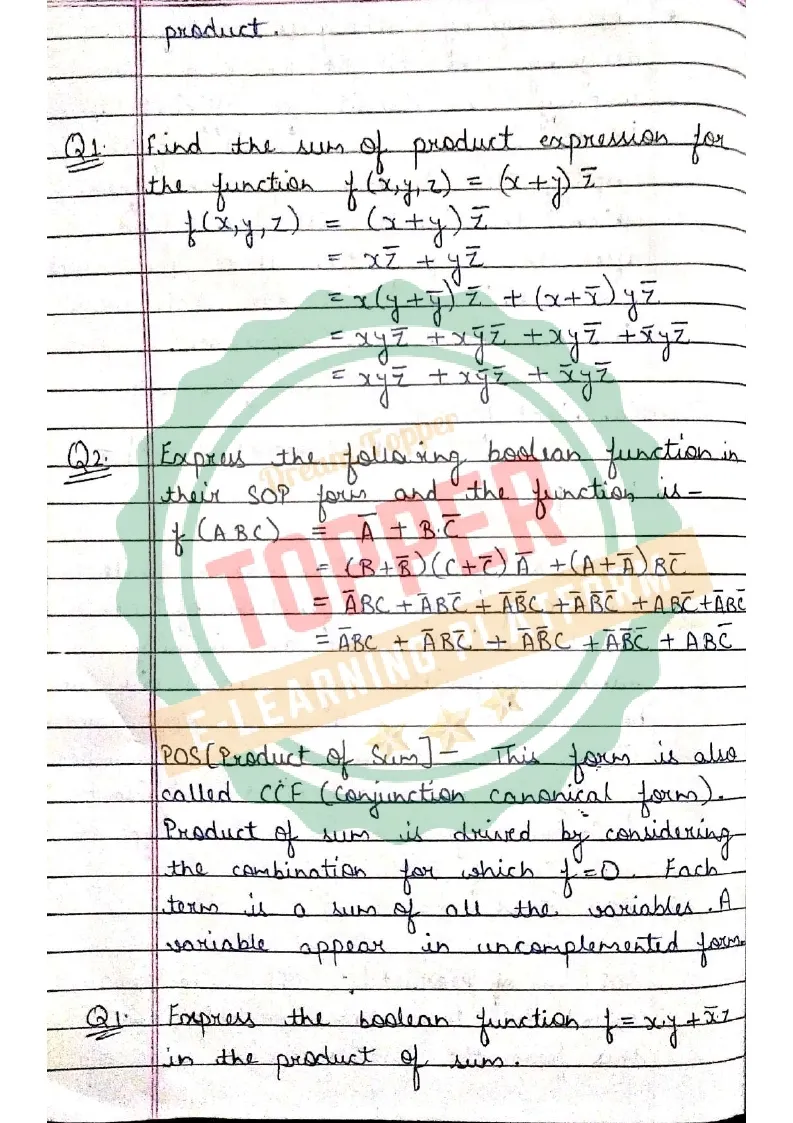 product.
Q1. Find the sum of product expression for
the function f(x,y,z) = (x+y) z̅
f(x,y,z) = (x+y) z̅
= xz̅ + yz̅
= x(y+y̅) z̅ + (x+x̅) yz̅
= xyz̅ + xy̅z̅ + xyz̅ + x̅yz̅
= xyz̅ + xy̅z̅ + x̅yz̅
Q2. Express the following boolean function in
their SOP form and the function is –
f (ABC) = A̅ + B.C̅
= (B+B̅)(C+C̅) A̅ + (A+A̅) BC̅
= A̅BC + A̅BC̅ + A̅B̅C + A̅B̅C̅ + ABC̅ + A̅BC̅
= A̅BC + A̅BC̅ + A̅B̅C + A̅B̅C̅ + ABC̅
POS [Product of Sum] – This form is also
called CCF (conjunction canonical form).
Product of sum is drived by considering
the combination for which f=0. Each
term is a sum of all the variables. A
variable appear in uncomplemented form.
Q1. Express the boolean function f = x.y + x̅.z
in the product of sum.
Dream Topper
TOPPER
E-LEARNING PLATFORM